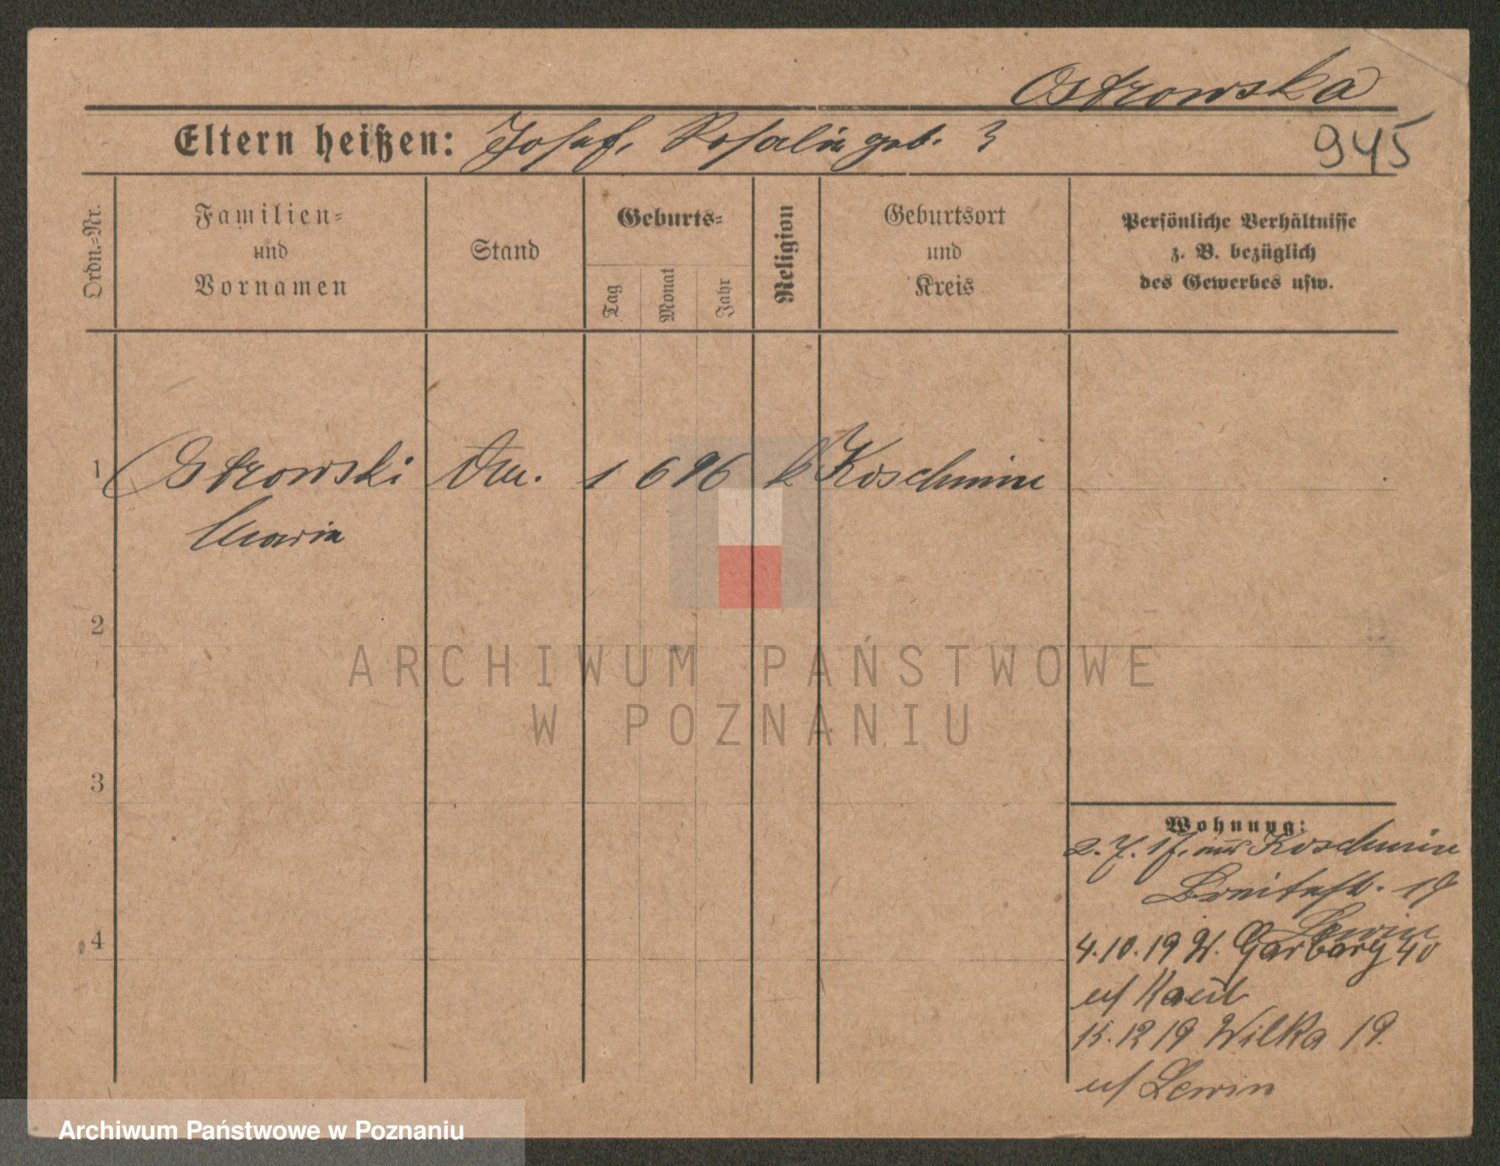 Ostrowska
Eltern heißen: Josef, Rosalie geb. 3
945
Ordn.=Nr.
Familien=
und
Vornamen
Stand
Geburts=
Tag
Monat
Jahr
Religion
Geburtsort
und
Kreis
Persönliche Verhältnisse
z. B. bezüglich
des Gewerbes usw.
1 Ostrowski 1 6 96 k Koschmin
Maria
2
3
4
ARCHIWUM PAŃSTWOWE
W POZNANIU
Wohnung:
Koschmin
Breitestr. 19
Lewin
4.10.19 W. Garbary 40
15.12 19 Wilka 19.
Lewin
Archiwum Państwowe w Poznaniu